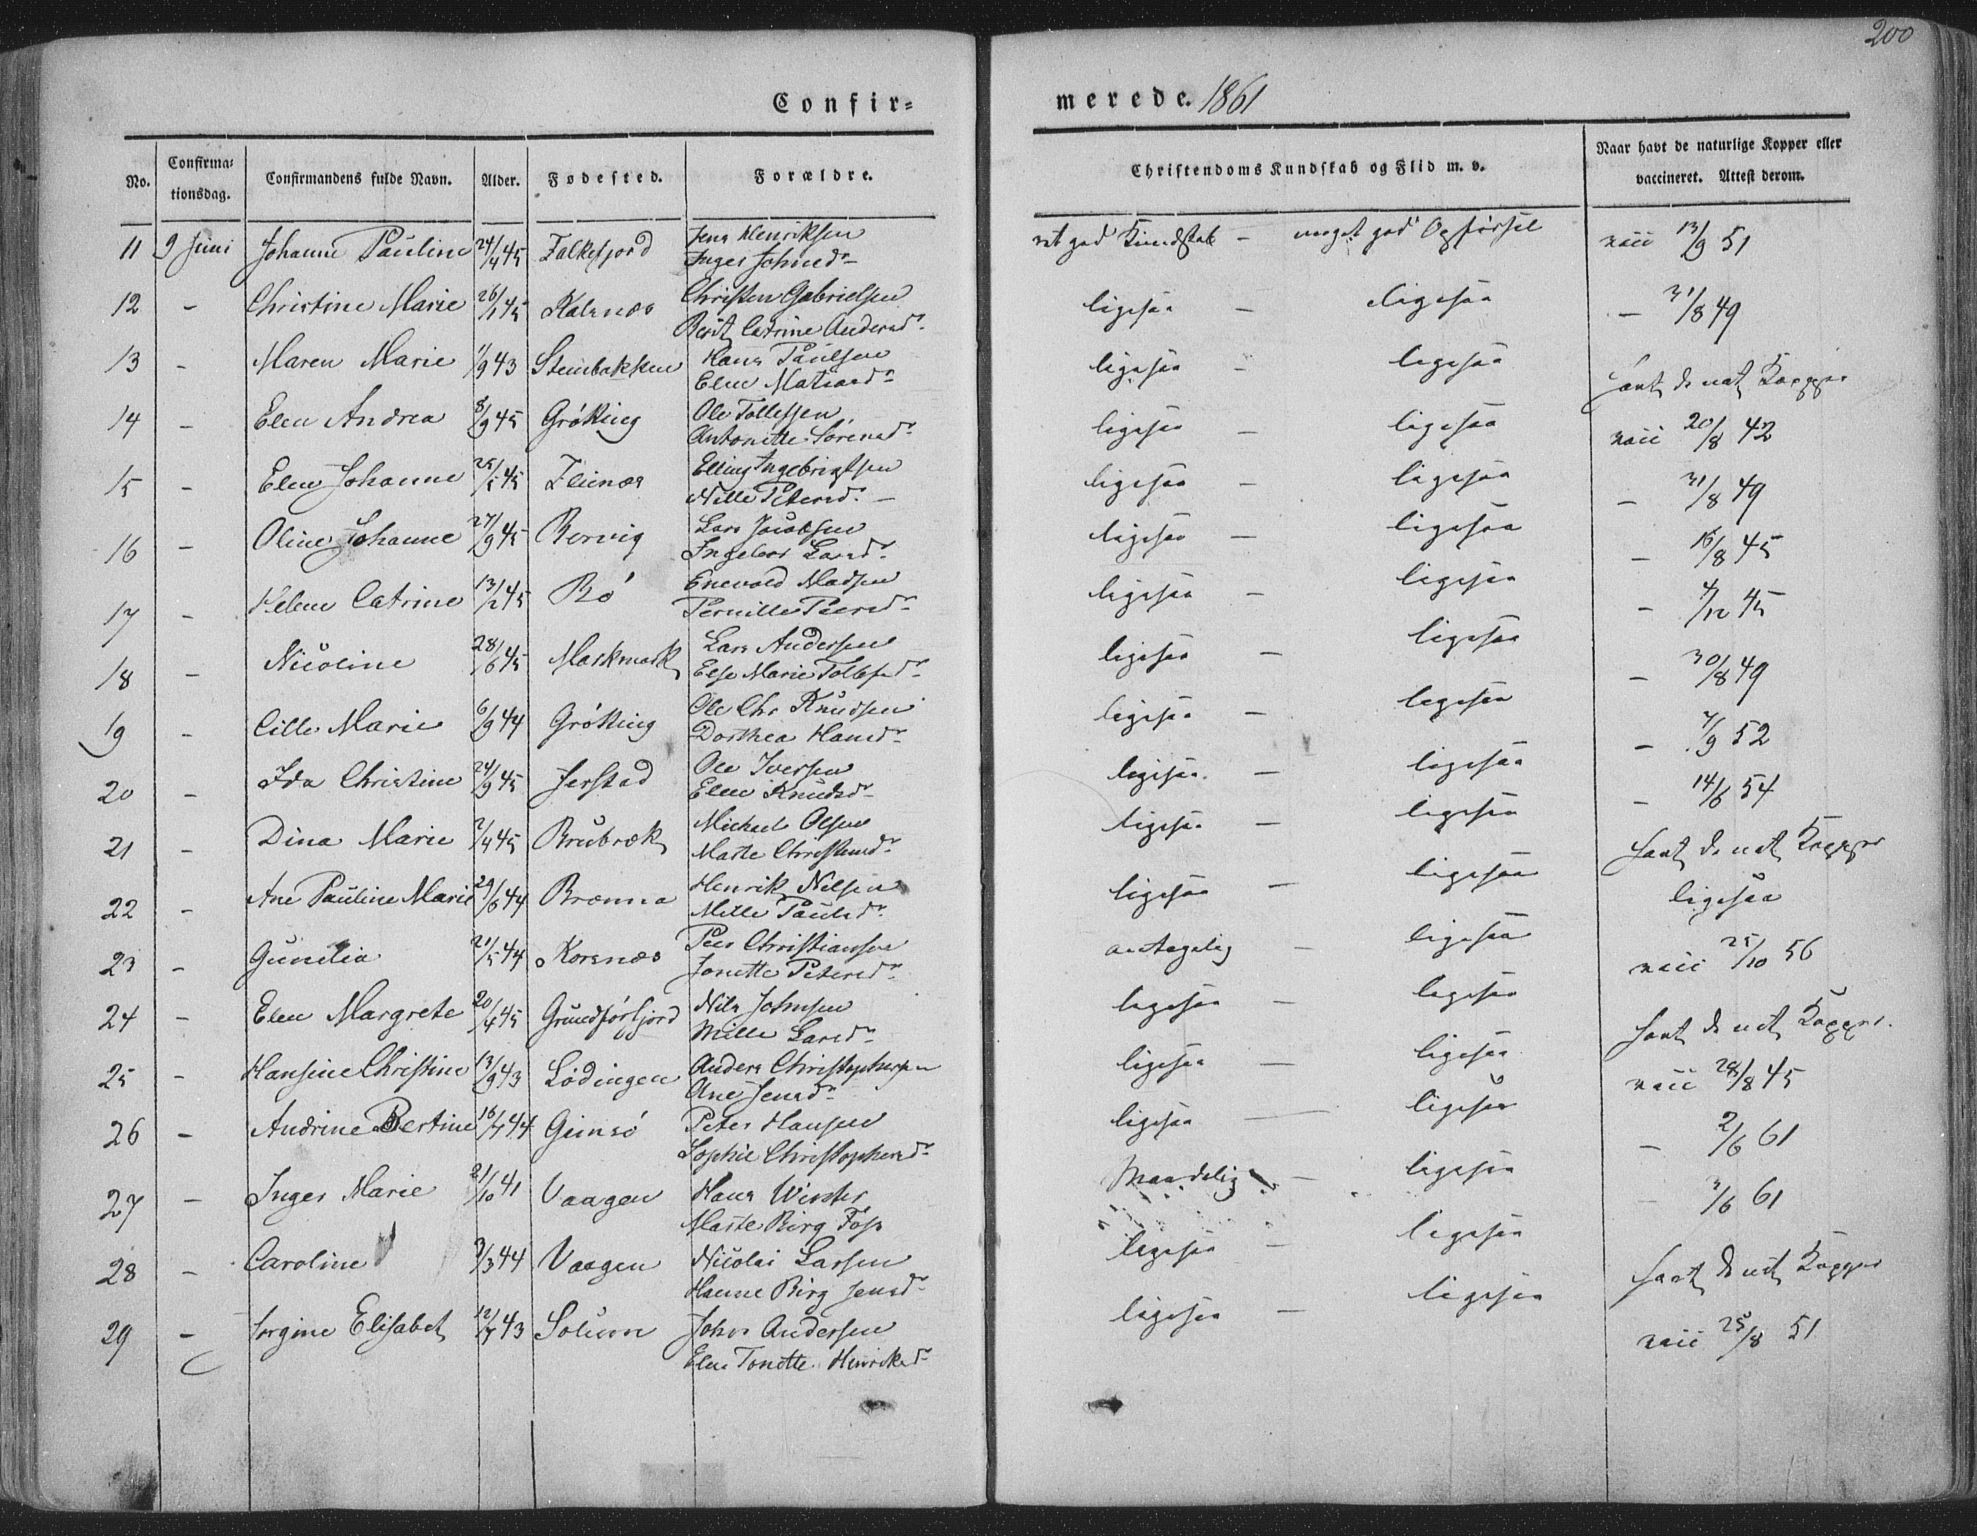 200
Confir=
merede. 1861
No.
Confirma=
tionsdag.
Confirmandens fulde Navn.
Alder.
Fødested.
Forældre.
Christendoms Kundskab og Flid m. v.
Naar havt de naturlige Kopper eller
vaccineret. Attest derom.
11 9 Juni Johanne Pauline 24/4 45 Falkefjord Jens Henriksen
Inger Johned. god Kundskab - meget god Opførsel vacc 13/9 51
12 - Christine Marie 26/1 45 Kalsnes Christen Gabrielsen
Berit Catrine Andersd. ligesaa - ligesaa - 31/8 49
13 - Maren Marie 1/9 43 Steinbakken Hans Paulsen
Elen Matiasd. ligesaa - ligesaa havt de nat Kopper
14 - Elen Andrea 8/9 45 Grøtting Ole Tollefsen
Antonette Sørensd. ligesaa - ligesaa vacc 20/8 42
15 - Elen Johanne 25/5 45 Fleinæs Elling Ingebrigtsen
Nille Petersd. - ligesaa - ligesaa - 31/8 49
16 - Oline Johanne 27/9 45 Rervig Lars Jacobsen
Ingebor Larsd. ligesaa - ligesaa - 16/8 45
17 - Helene Catrine 13/12 45 Bø Enevold Madsen
Pernille Peersd. ligesaa - ligesaa - 4/12 45
18 - Nicoline 28/6 45 Maskmark Lars Andersen
Else Marie Tollefsd. ligesaa - ligesaa - 30/8 49
19 - Cille Marie 6/9 44 Grøtting Ole Chr Knudsen
Dorthea Hansd. ligesaa - ligesaa - 7/9 52
20 - Ida Christine 24/9 45 Jerstad Ole Iversen
Elen Knudsd. ligesaa - ligesaa - 14/6 54
21 - Dina Marie 7/4 45 Brubræk Michael Olsen
Marte Christensd. ligesaa - ligesaa havt de nat Kopper
22 - Ane Pauline Marie 29/6 44 Brænna Henrik Nilsen
Mille Paulsd. ligesaa - ligesaa ligesaa
23 - Gunelia 21/5 44 Korsnæs Peer Christiansen
Jonette Petersd. antagelig - ligesaa vacc 25/10 56
24 - Elen Margrete 20/4 45 Grundførfjord Nils Johnsen
Mille Larsd. ligesaa - ligesaa havt de nat Kopper.
25 - Hansine Christine 13/9 43 Lødingen Anders Christophersen
Ane Jensd. ligesaa - ligesaa vacc 28/8 45
26 - Andrine Bertine 16/7 44 Gimsø Peter Hansen
Sophie Christophersd. ligesaa - ligesaa - 2/6 61
27 - Inger Marie 21/10 41 Vaagen Hans Winter
Marte Birg Foss Maadelig - ligesaa - 3/6 61
28 - Caroline 3/3 44 Vaagen Nicolai Larsen
Hanne Birg Jensd. ligesaa - ligesaa havt de nat Kopper
29 - Jorgine Elisabet 12/7 43 Solvorn Johs Andersen
Elen Tonette Henriksd. ligesaa - ligesaa vacc 25/8 51